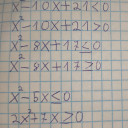 x²-10x+21<0
x²-10x+21>0
x²-8x+17≤0
x²-8x+17≥0
x²-5x≤0
2x²+7x≥0